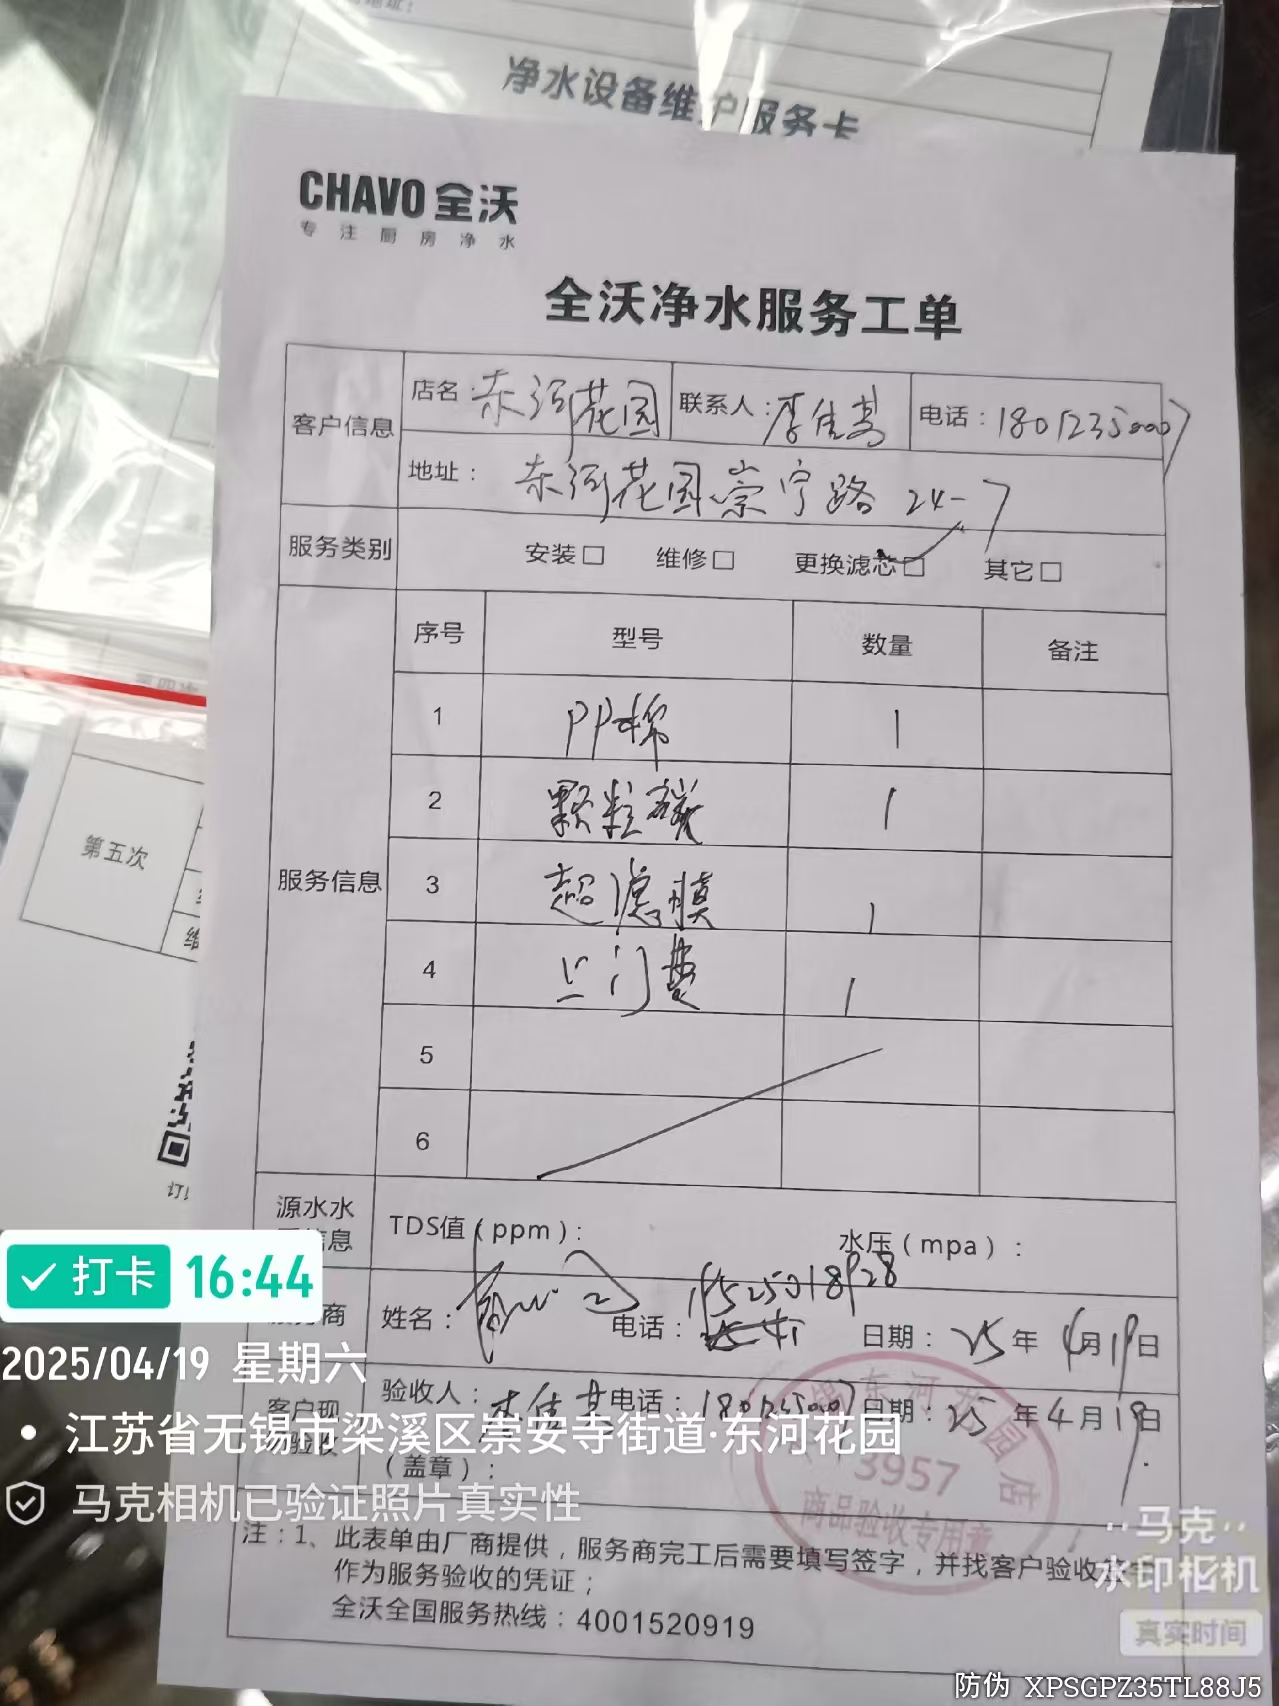 净水设备维护服务卡
CHAVO 全沃
专注厨房净水
全沃净水服务工单
客户信息
店名 东河花园
联系人：李佳蒿
电话：18012350007
地址： 东河花园崇宁路 24-7
服务类别
安装□ 维修□ 更换滤芯□ 其它□
服务信息
序号 型号 数量 备注
1 PP棉 1
2 颗粒碳 1
3 超滤膜 1
4 上门费 1
5
6
第五次
源水水
TDS值（ppm）： 水压（mpa）：
姓名： 电话： 日期：25年4月19日
验收人： 电话：18012350007 日期：25年4月19日
（盖章）：
东河花园店
3957
商品验收专用章
注：1、此表单由厂商提供，服务商完工后需要填写签字，并找客户验收
作为服务验收的凭证；
全沃全国服务热线：4001520919
打卡 16:44
2025/04/19 星期六
江苏省无锡市梁溪区崇安寺街道·东河花园
马克相机已验证照片真实性
马克
水印相机
真实时间
防伪 XPSGPZ35TL88J5